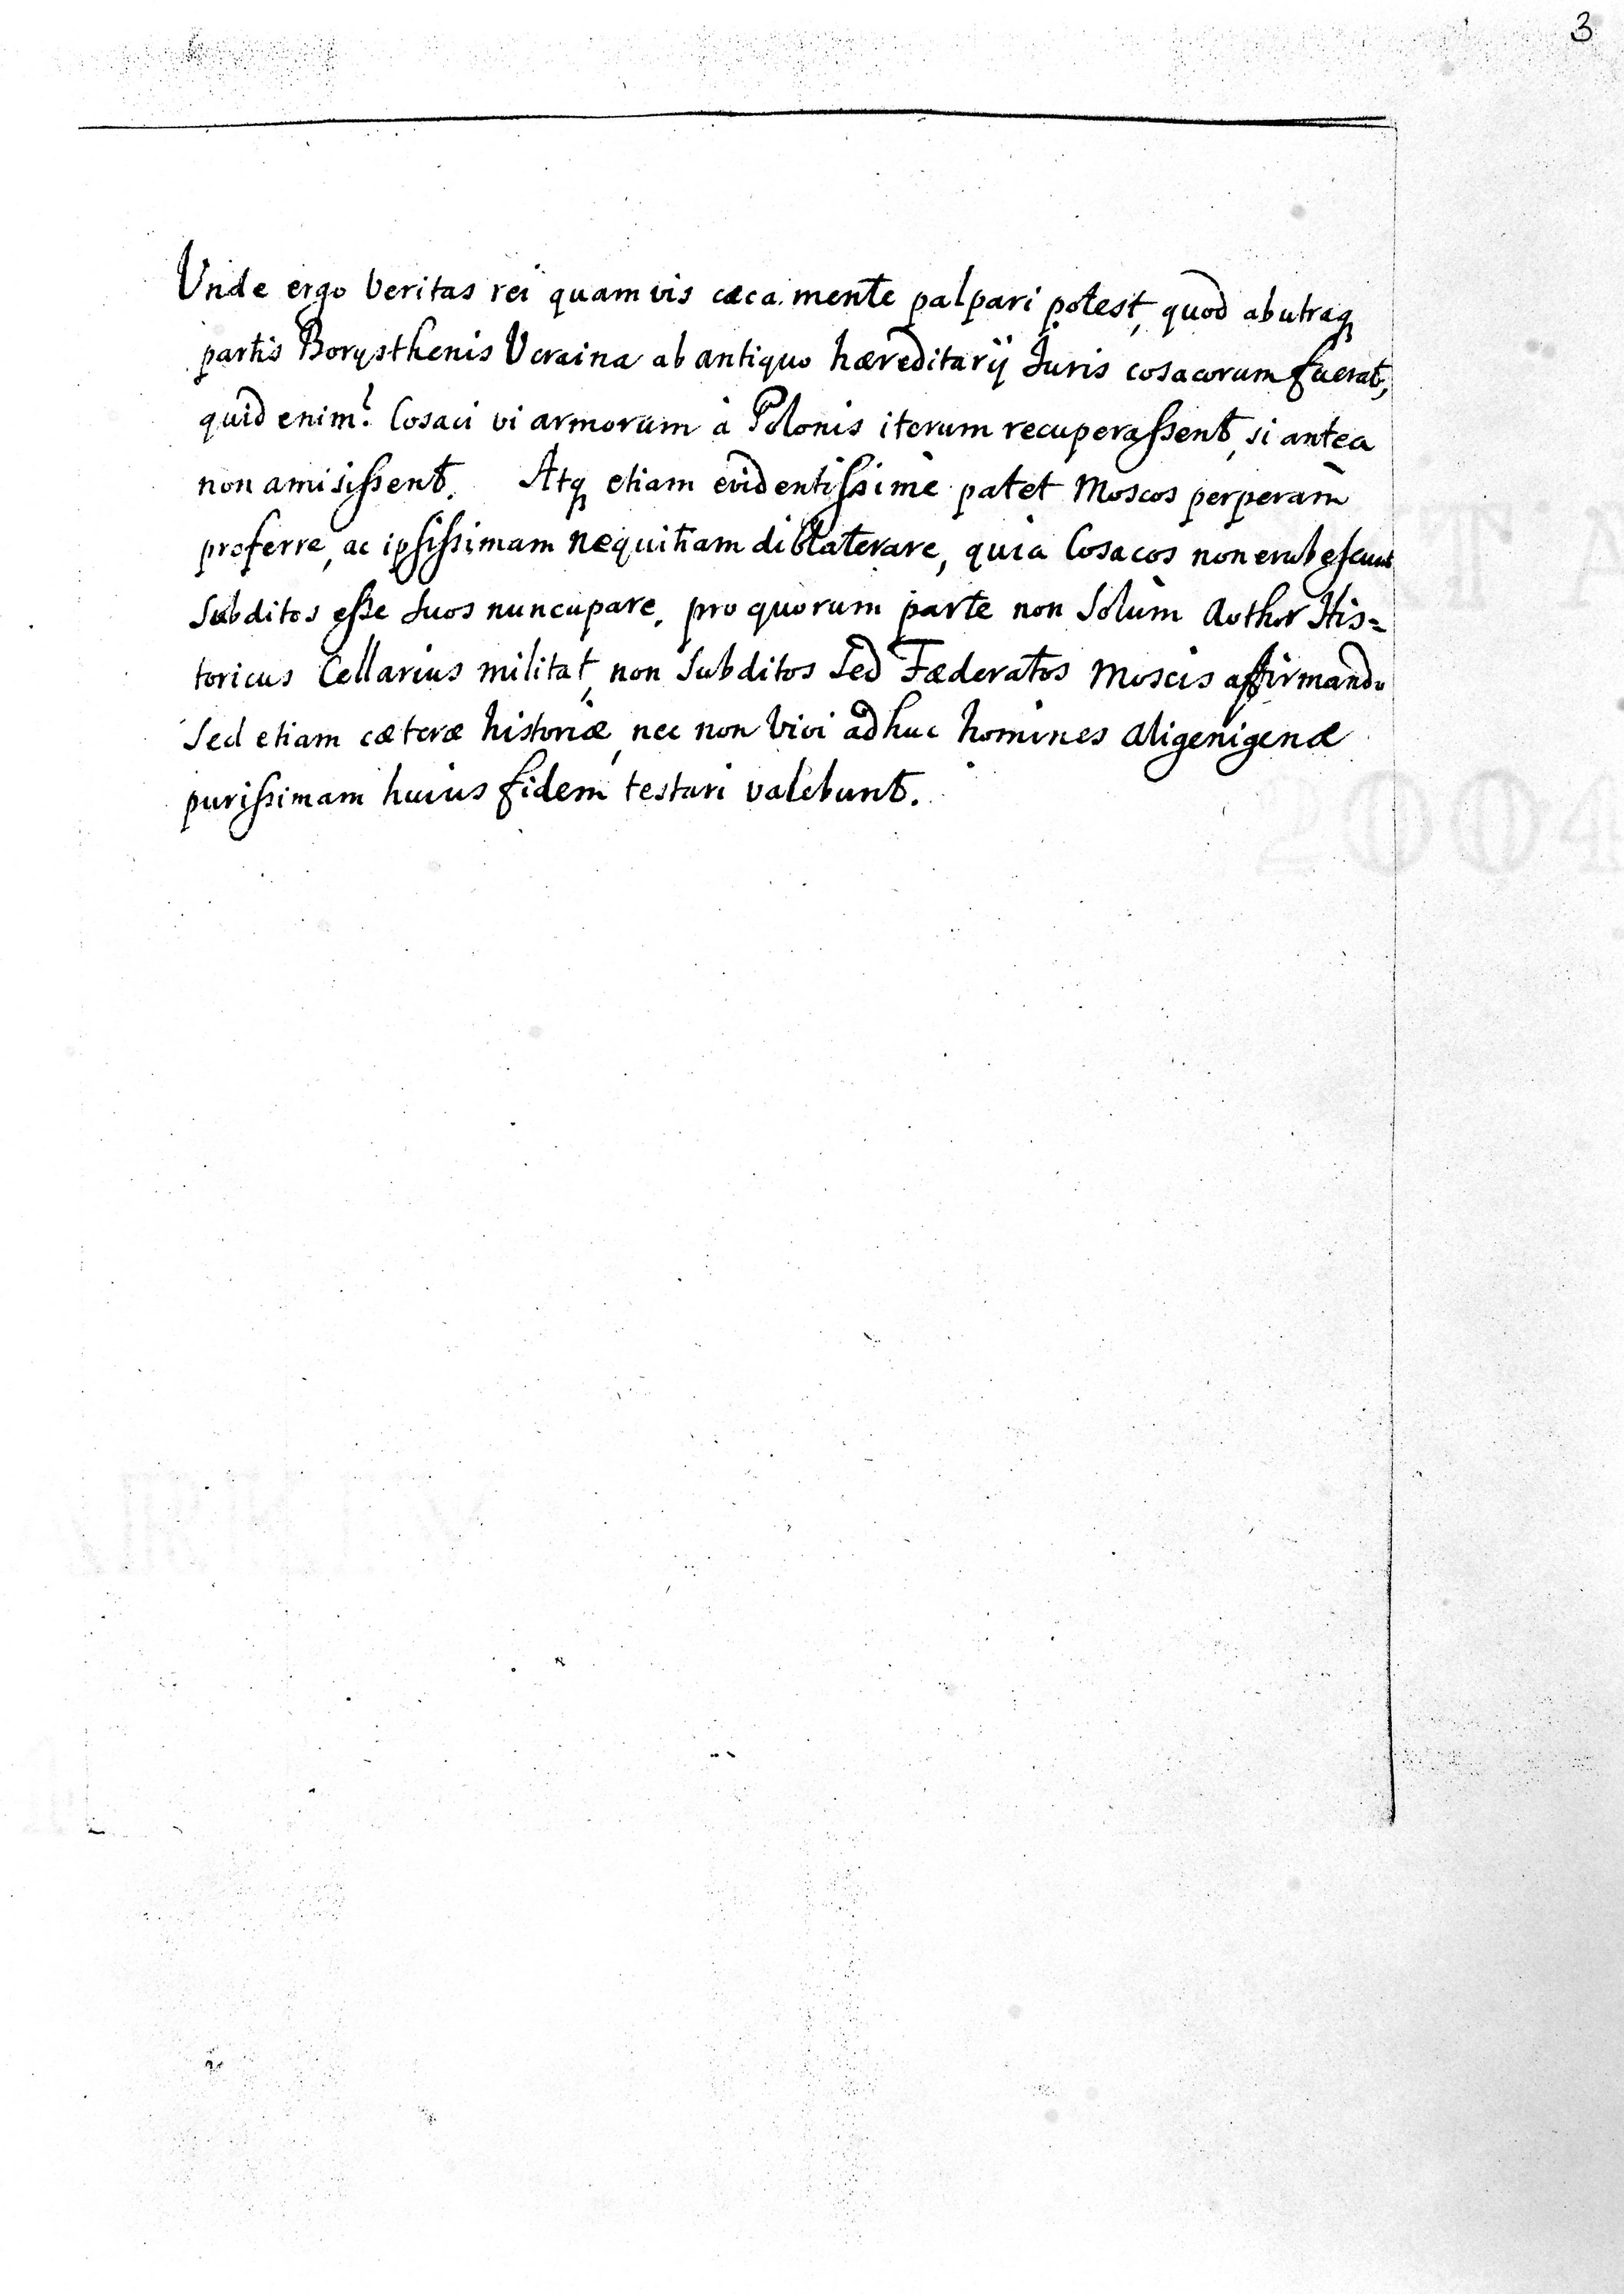 3
Unde ergo veritas rei quamvis cæca mente palpari potest, quod ab utraq
partis Borysthenis Ucraina ab antiquo hæreditarij Juris cosacorum fuerat,
quid enim? Cosaci vi armorum à Polonis iterum recuperassent, si antea
non amisissent. Atq etiam evidentissimè patet Moscos perperàm
proferre, ac ipsissimam nequitiam diblaterare, quia Cosacos non erubescunt
Subditos esse suos nuncupare, pro quorum parte non Solùm Author His=
toricus Cellarius militat, non Subditos Sed Fæderatos Moscis affirmando
Sed etiam cæteræ historiæ, nec non vivi adhuc homines aligenigenæ
purissimam huius fidem testari valebunt.
2004